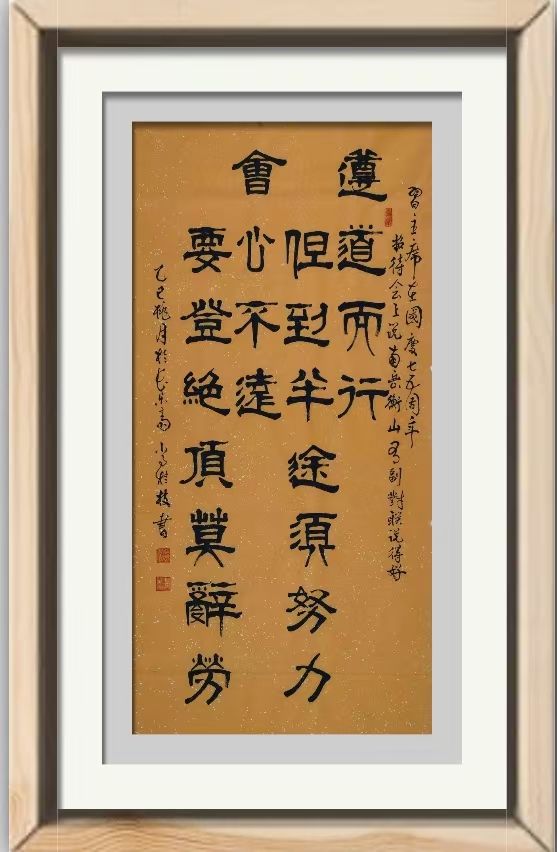 習主席在國慶七五周年
招待会上说南岳衡山有副對联说得好
遵道而行
但到半途須努力
會心不遠
要登絶頂莫辭勞
乙巳桃月於 枝書